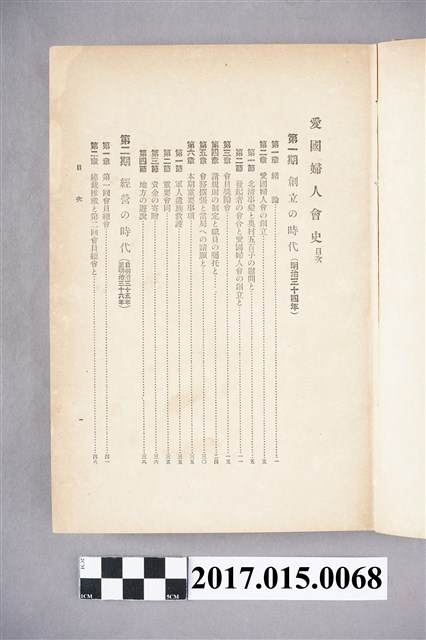 愛國婦人會史 目次
第一期 創立の時代 (明治三十四年)
第一章 緒論……一
第二章 愛國婦人會の創立……五
第一節 北清事變と奥村五百子の慰問と……五
第二節 發起者の會合と愛國婦人會の創立と……一一
第三章 會員奬勵會……一五
第四章 諸規則の制定と職員の囑托と……二四
第五章 會務擴張と當局への請願と……三〇
第六章 本期重要事項……三五
第一節 軍人遺族救護……三五
第二節 重要會同……三五
第三節 資金の寄附……三六
第四節 地方の遊説……三八
第二期 經營の時代 (自明治三十五年至明治三十六年)
第一章 第一回會員總會……四一
第二章 總裁推戴と第二回會員總會と……四八
目次
一
1CM
2CM
5CM
2017.015.0068